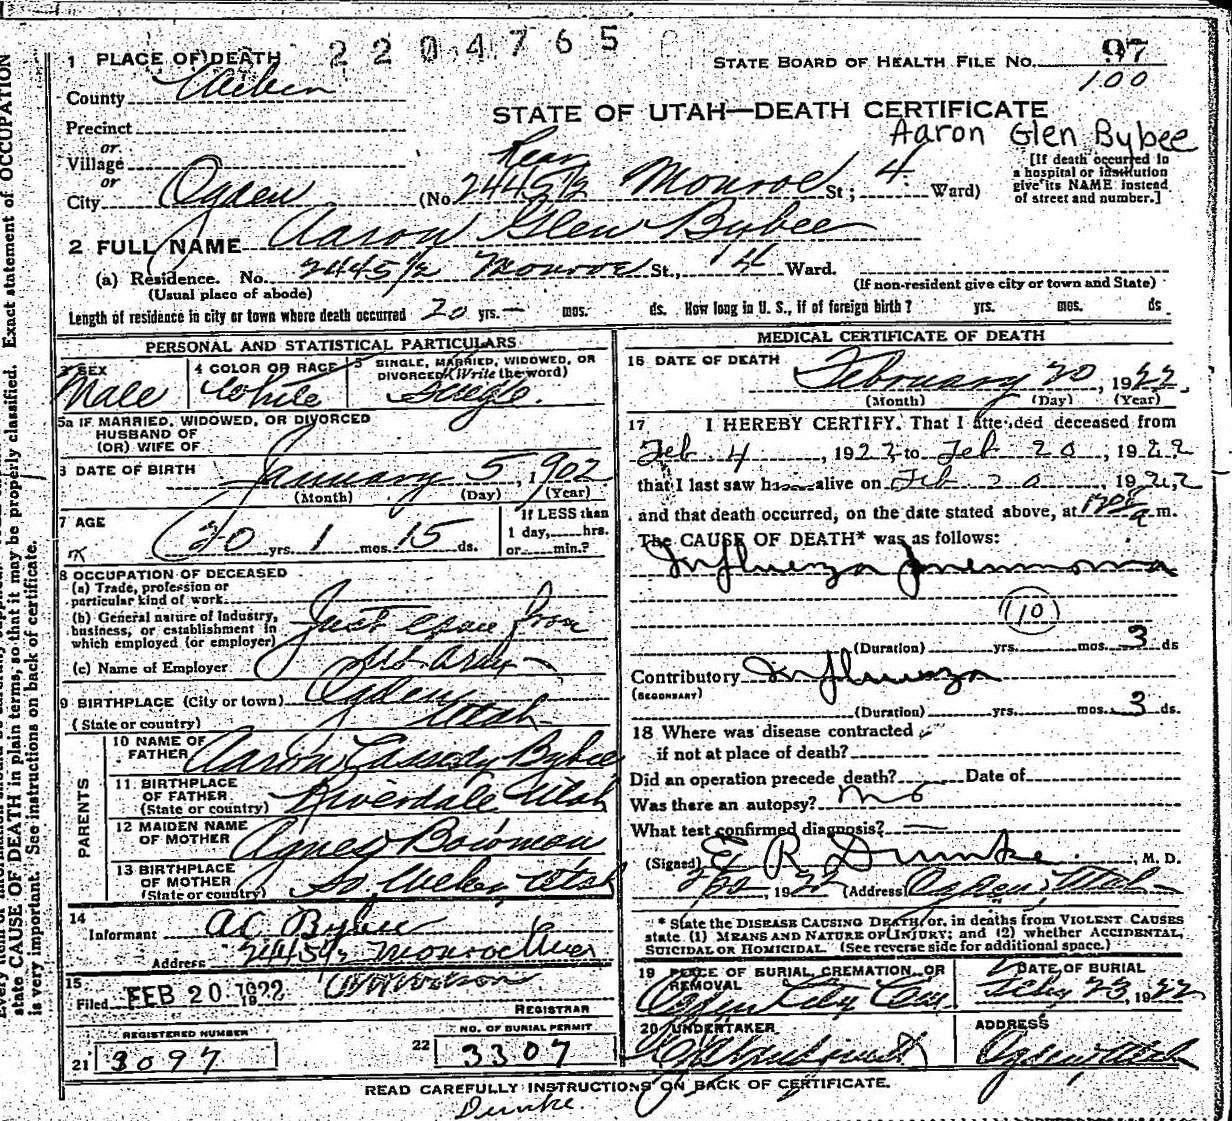 2204765
1 PLACE OF DEATH
STATE BOARD OF HEALTH FILE NO. 97
100
County Weber
STATE OF UTAH—DEATH CERTIFICATE
Precinct
Aaron Glen Bybee
or
Village
Rear
or
City Ogden (No. 2445 1/2 Monroe St; 4 Ward)
[If death occurred in a hospital or institution give its NAME instead of street and number.]
2 FULL NAME Aaron Glen Bybee
(a) Residence. No. 2445 1/2 Monroe St., 4 Ward.
(Usual place of abode) (If non-resident give city or town and State)
Length of residence in city or town where death occurred 20 yrs. — mos. ds. How long in U. S., if of foreign birth? yrs. mos. ds
PERSONAL AND STATISTICAL PARTICULARS
3 SEX
Male
4 COLOR OR RACE
White
5 SINGLE, MARRIED, WIDOWED, OR
DIVORCED (Write the word)
Single.
5a IF MARRIED, WIDOWED, OR DIVORCED
HUSBAND OF
(OR) WIFE OF
6 DATE OF BIRTH January 5, 1902
(Month) (Day) (Year)
7 AGE 20 yrs. 1 mos. 15 ds.
If LESS than
1 day, hrs.
or min.?
8 OCCUPATION OF DECEASED
(a) Trade, profession or
particular kind of work
(b) General nature of Industry,
business, or establishment in
which employed (or employer)
Just came from
(c) Name of Employer
9 BIRTHPLACE (City or town) Ogden
(State or country) Utah
PARENTS
10 NAME OF
FATHER Aaron Cassedy Bybee
11 BIRTHPLACE
OF FATHER
(State or country) Riverdale Utah
12 MAIDEN NAME
OF MOTHER Agnes Bowman
13 BIRTHPLACE
OF MOTHER
(State or country) So. Weber, Utah
14
Informant AC Bybee
Address 2445 1/2 Monroe Ave
15
Filed FEB 20 1922
REGISTRAR
REGISTERED NUMBER
21 3097
NO. OF BURIAL PERMIT
22 3307
MEDICAL CERTIFICATE OF DEATH
16 DATE OF DEATH
February 20, 1922
(Month) (Day) (Year)
17 I HEREBY CERTIFY. That I attended deceased from
Feb 4, 1922, to Feb 20, 1922
that I last saw h alive on Feb 20, 1922
and that death occurred, on the date stated above, at m.
The CAUSE OF DEATH* was as follows:
Influenza Pneumonia
(10)
(Duration) yrs. mos. 3 ds
Contributory Influenza
(SECONDARY)
(Duration) yrs. mos. 3 ds.
18 Where was disease contracted
if not at place of death?
Did an operation precede death? Date of
Was there an autopsy? no
What test confirmed diagnosis? —
(Signed) E R Dumke, M. D.
1922 (Address) Ogden, Utah
* State the DISEASE CAUSING DEATH, or, in deaths from VIOLENT CAUSES
state (1) MEANS AND NATURE OF INJURY; and (2) whether ACCIDENTAL,
SUICIDAL OR HOMICIDAL. (See reverse side for additional space.)
19 PLACE OF BURIAL, CREMATION, OR
REMOVAL
Ogden City Cem
DATE OF BURIAL
Feby 23, 1922
20 UNDERTAKER
ADDRESS
Ogden Utah
READ CAREFULLY INSTRUCTIONS ON BACK OF CERTIFICATE.
Dumke.
state CAUSE OF DEATH in plain terms, so that it may be properly classified. Exact statement of OCCUPATION
is very important. See instructions on back of certificate.